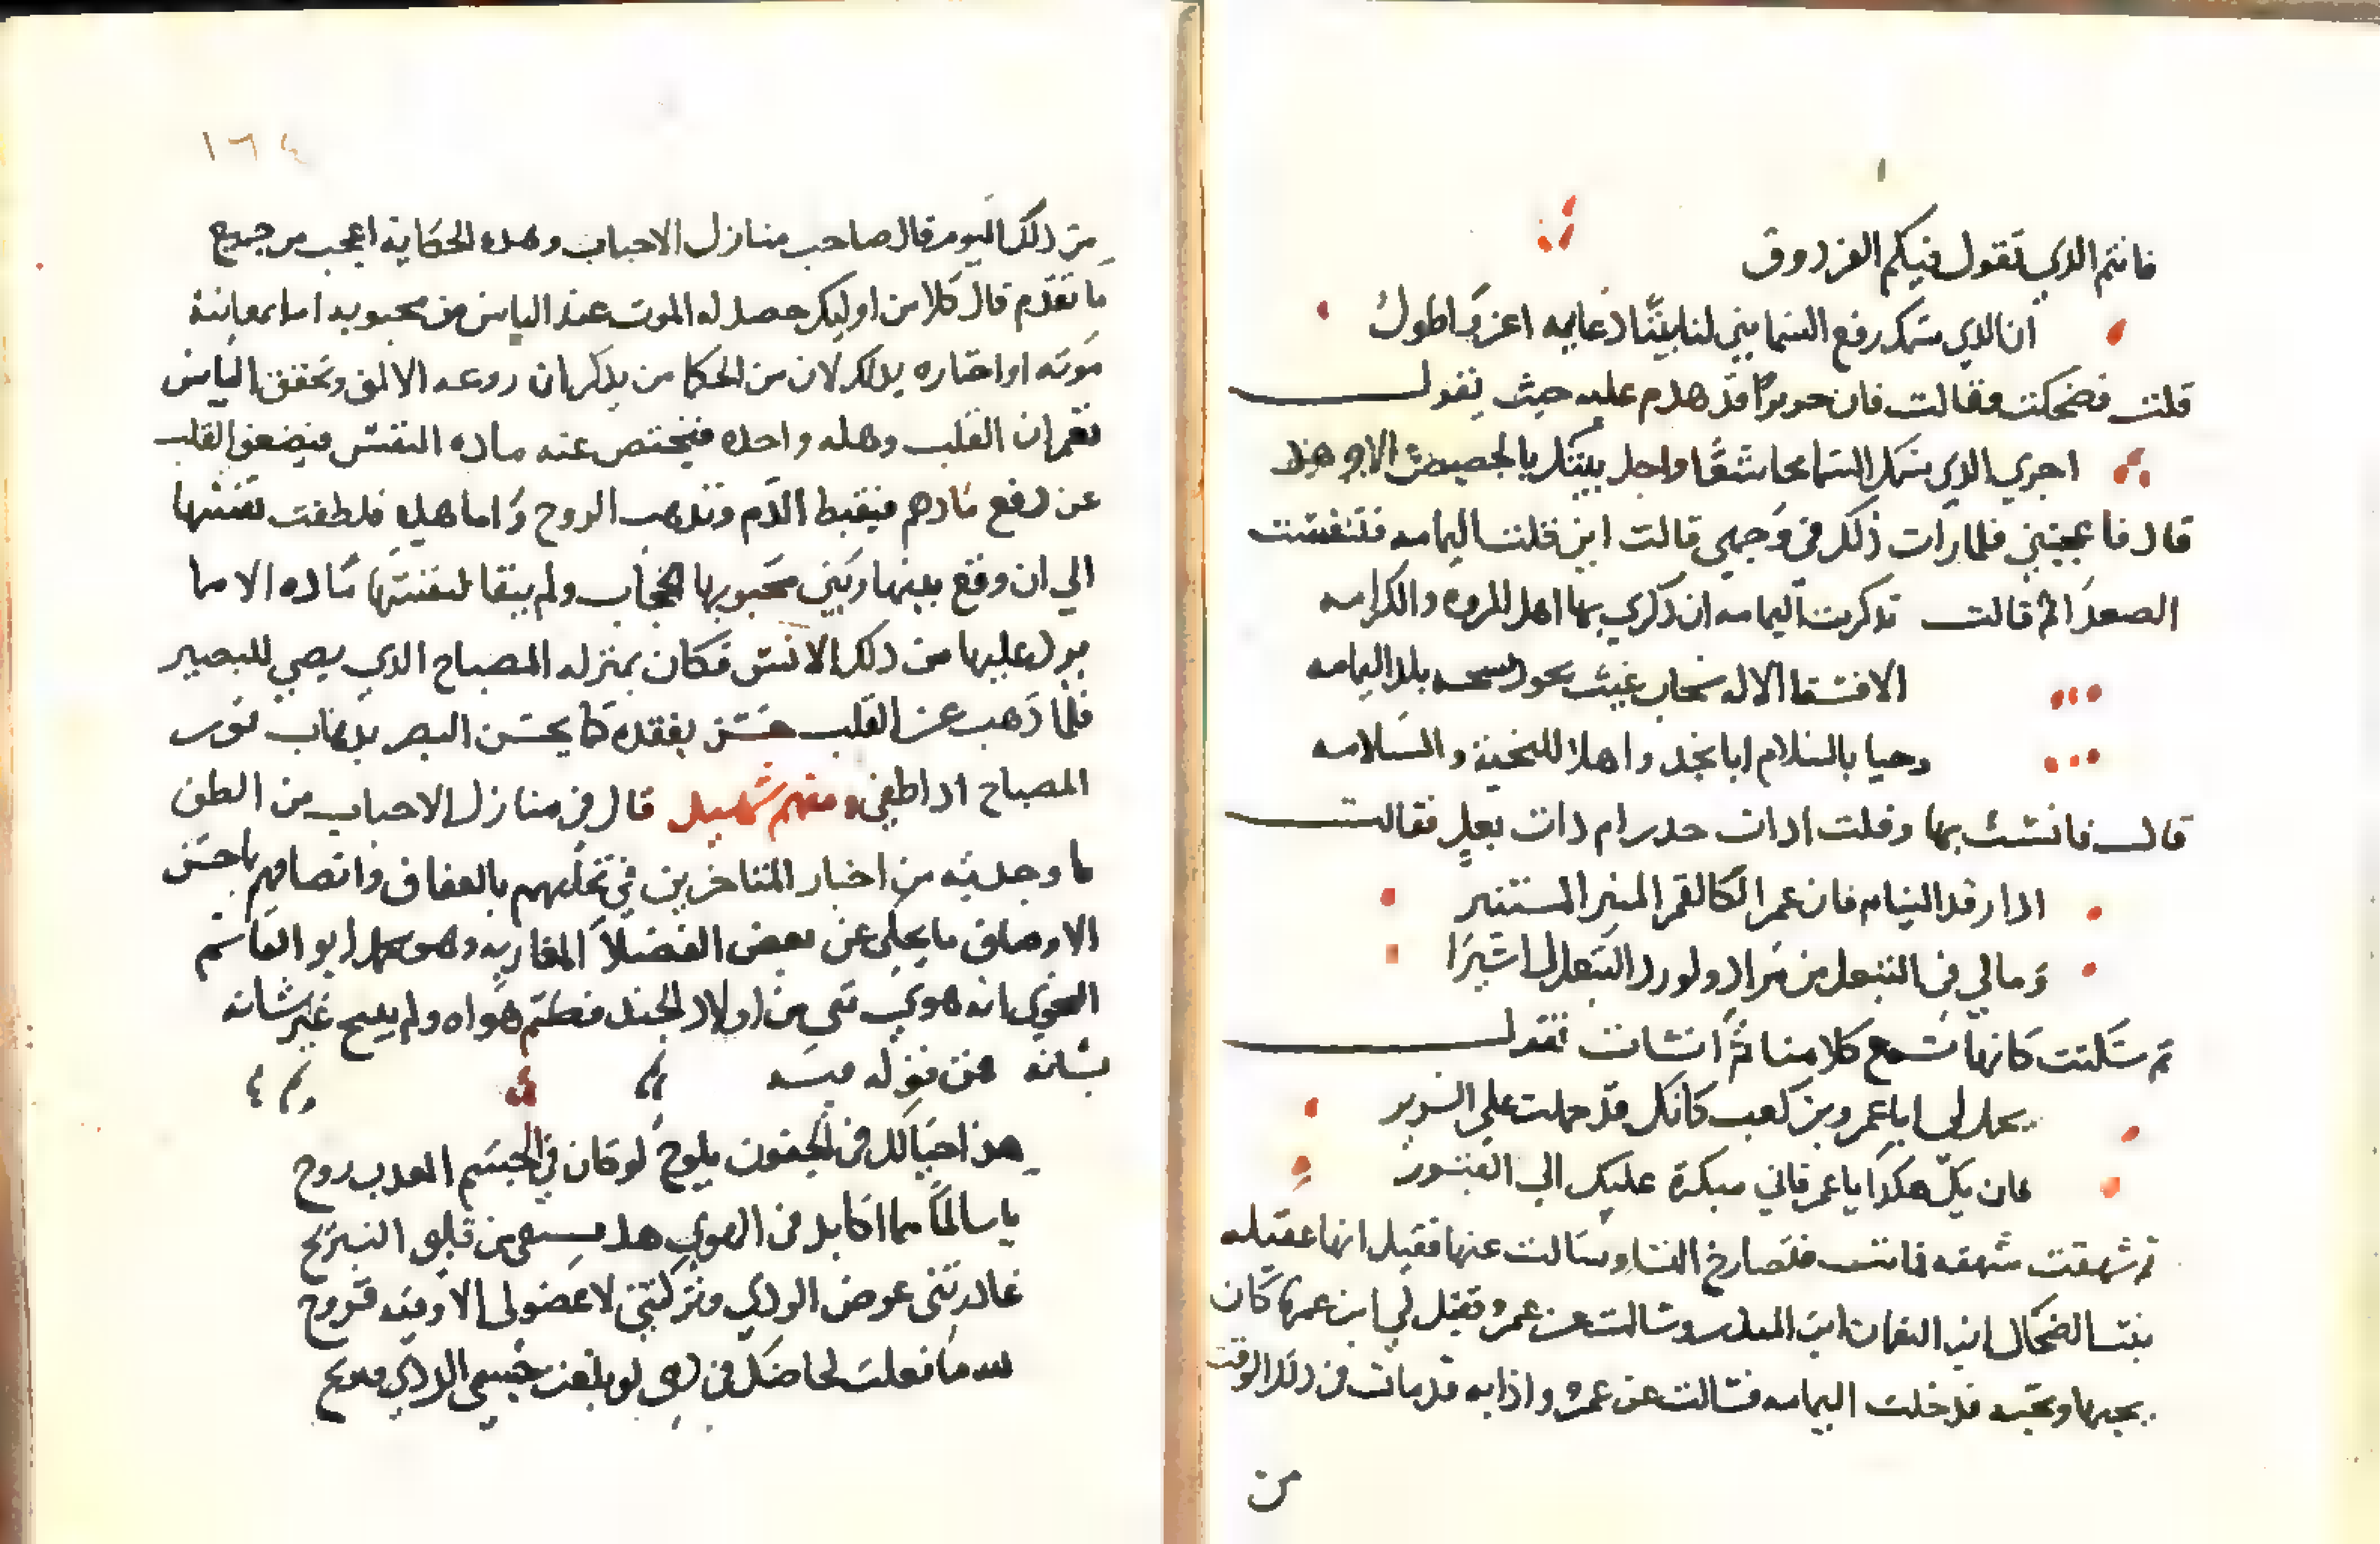 فانتم الذي تقول فيكم الفرزدوق
ان الذي سمك رفع السما بني لنا بيتا دعايمه اعز واطول
قلت فضحكت وقالت فان جريرا قد هدم عليه حيث يقول
اخزي الذي سمك السما مجاشعا واحل بيتك بالحضيض الاوهد
قال فاعجبتني فلما رات ذلك في وجهي قالت اين قلت اليمامه فتنفست
الصعدا ثم قالت تذكرت اليمامه ان ذكري بها اهل المروه والكرامه
الا فسقا الاله سحاب غيث بلد اليمامه
وحيا بالسلام ابا نجد واهلا للتحية والسلامه
قال فانست بها وقلت ادات حدر ام دات بعل فقالت
ادا رقد النيام فان عمرا لكالقمر المنير المستنير
وما لي في التبعل من مراد ولو رد التبعل لي اسيرا
ثم سكتت كانها تسمع كلامنا ثم انشات تقول
يخيل لي ايا عمرو بن كعب كانك قد حملت علي السرير
فان يك هكذا يا عمر فاني مبكرة عليك الي القبور
ثم شهقت شهقه فماتت فتصارخ النسا وسالت عنها فقيل انها عقيله
بنت الضحاك ابن النعمان ابن وسالت عن عمرو فقيل لي ابن عمها كان
يحبها وتحبه فدخلت اليمامه فسالت عن عمرو واذا به قد مات في ذلك الوقت
من
١٦٤
من ذلك اليوم قال صاحب منازل الاحباب وهذه الحكاية اعجب من جميع
ما تقدم قال كلا من اوليك حصل له الموت عند الياس من محبوبه اما بمعاينة
موته او اخباره بذلك لان من الحكما من يذكر ان روعه الالف وتحقق الياس
القلب وهله واحده عنه ماده النفس فيضعف القلب
عن دفع مادهم الدم وتذهب الروح واما هذه فلطفت نفسها
الي ان وقع بينها وبين محبوبها الحجاب ولم يبقا لنفسها ماده الا ما
يرد عليها من ذلك الانس فكان بمنزله المصباح الذي يضي للبصير
فلما ذهب عن القلب حسن بفقده كما يحسن البصر بذهاب نور
المصباح اذا اطفي ومنهم شهيد قال في منازل الاحباب من الطف
ما وجدته من اخبار المتاخرين في تحليهم بالعفاف واتصافهم باحسن
الاوصاف ما يحكي عن بعض الفضلا المغاربه وهو ابو القاسم
انه هوي فتي من اولاد الجند فكتم هواه ولم يبح غير شانه
بشانه فمن قوله فيه
هذا خيالك في الجفون يلوح لو كان في الجسم المعذب روح
يا سالما مما اكابد في الهوي هل من قلبي التبريح
غادرتني عوض الردي وتركتني لا عضو لي الا وفيه قروح
لله ما فعلت لحاضك في دمي لو بلغت الردي